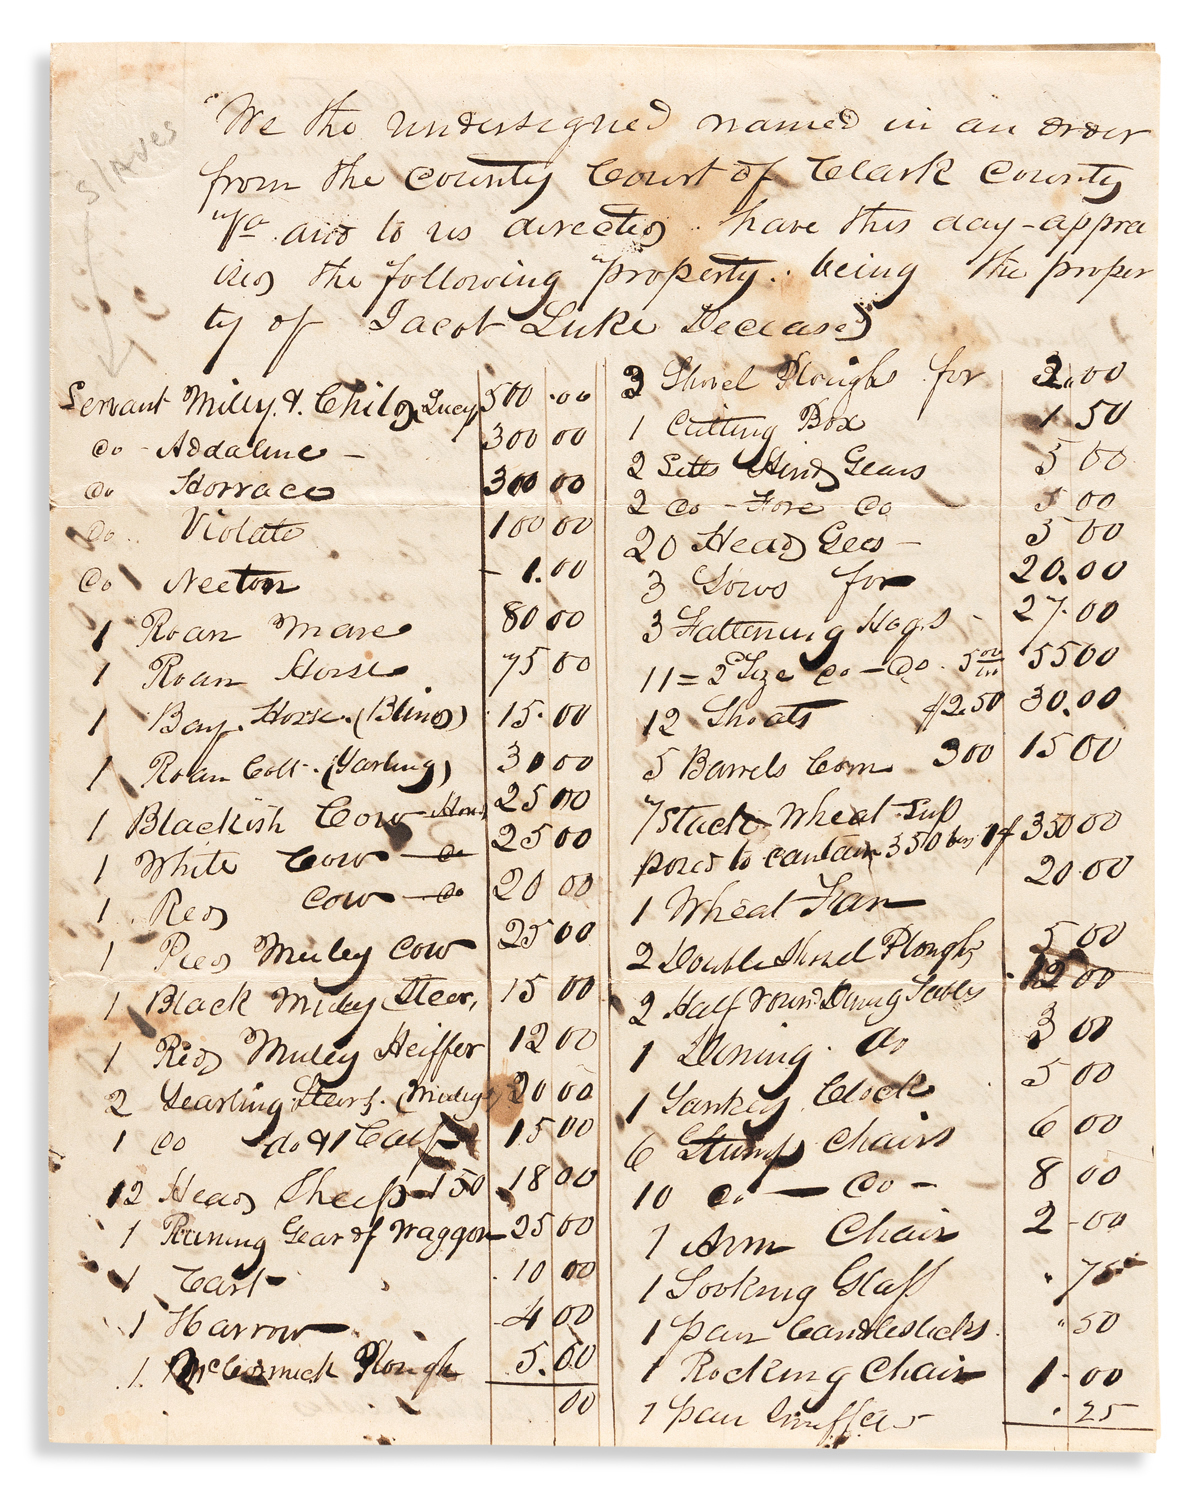 slaves
We the undersigned named in an order
from the County Court of Clark County
Va and to us directed have this day appra
ised the following property. being the proper
ty of Jacob Luke Deceased
Servant Milly & Child Lucy 500.00
do - Addaline - 300 00
do Horrace 300 00
do Violate 100 00
do Neeton 1.00
1 Roan Mare 80 00
1 Roan Horse 75 00
1 Bay Horse (Blind) 15.00
1 Roan Colt. (Yarling) 30 00
1 Blackish Cow 25 00
1 White Cow - do 25 00
1 Red Cow - do 20 00
1 Pied Muley Cow 25 00
1 Black Muley Steer, 15 00
1 Red Muley Heiffer 12 00
2 Yearling Steers. (Muley) 20 00
1 do do & 1 Calf 15 00
12 Head Sheep 1 50 18 00
1 Runing Gear of Waggon 25 00
1 Cart 10 00
1 Harrow 4 00
1 McCormick Plough 5.00
00
3 Shovel Ploughs for 3.00
1 Cutting Box 1 50
2 Setts Hind Gears 5 00
2 do - Fore do 5 00
20 Head Gees - 5 00
3 Sows for 20.00
3 Fattening Hogs - 27.00
11 = 2d Size do - do. 5 00 55 00
12 Shoats $2.50 30.00
5 Barrels Corn 3 00 15 00
7 Stack Wheat Sup
posed to contain 350 bus 1$ 350 00
1 Wheat Fan 20.00
2 Double Shovel Ploughs 5 00
2 Half round Dining Tables 12 00
1 Dining do 3 00
1 Yankey Clock 5 00
6 Stump Chairs 6 00
10 do - do - 8 00
1 Arm Chair 2 - 00
1 Looking Glass 75
1 pair Candlesticks. 50
1 Rocking Chair 1.00
1 pair Snuffers 25